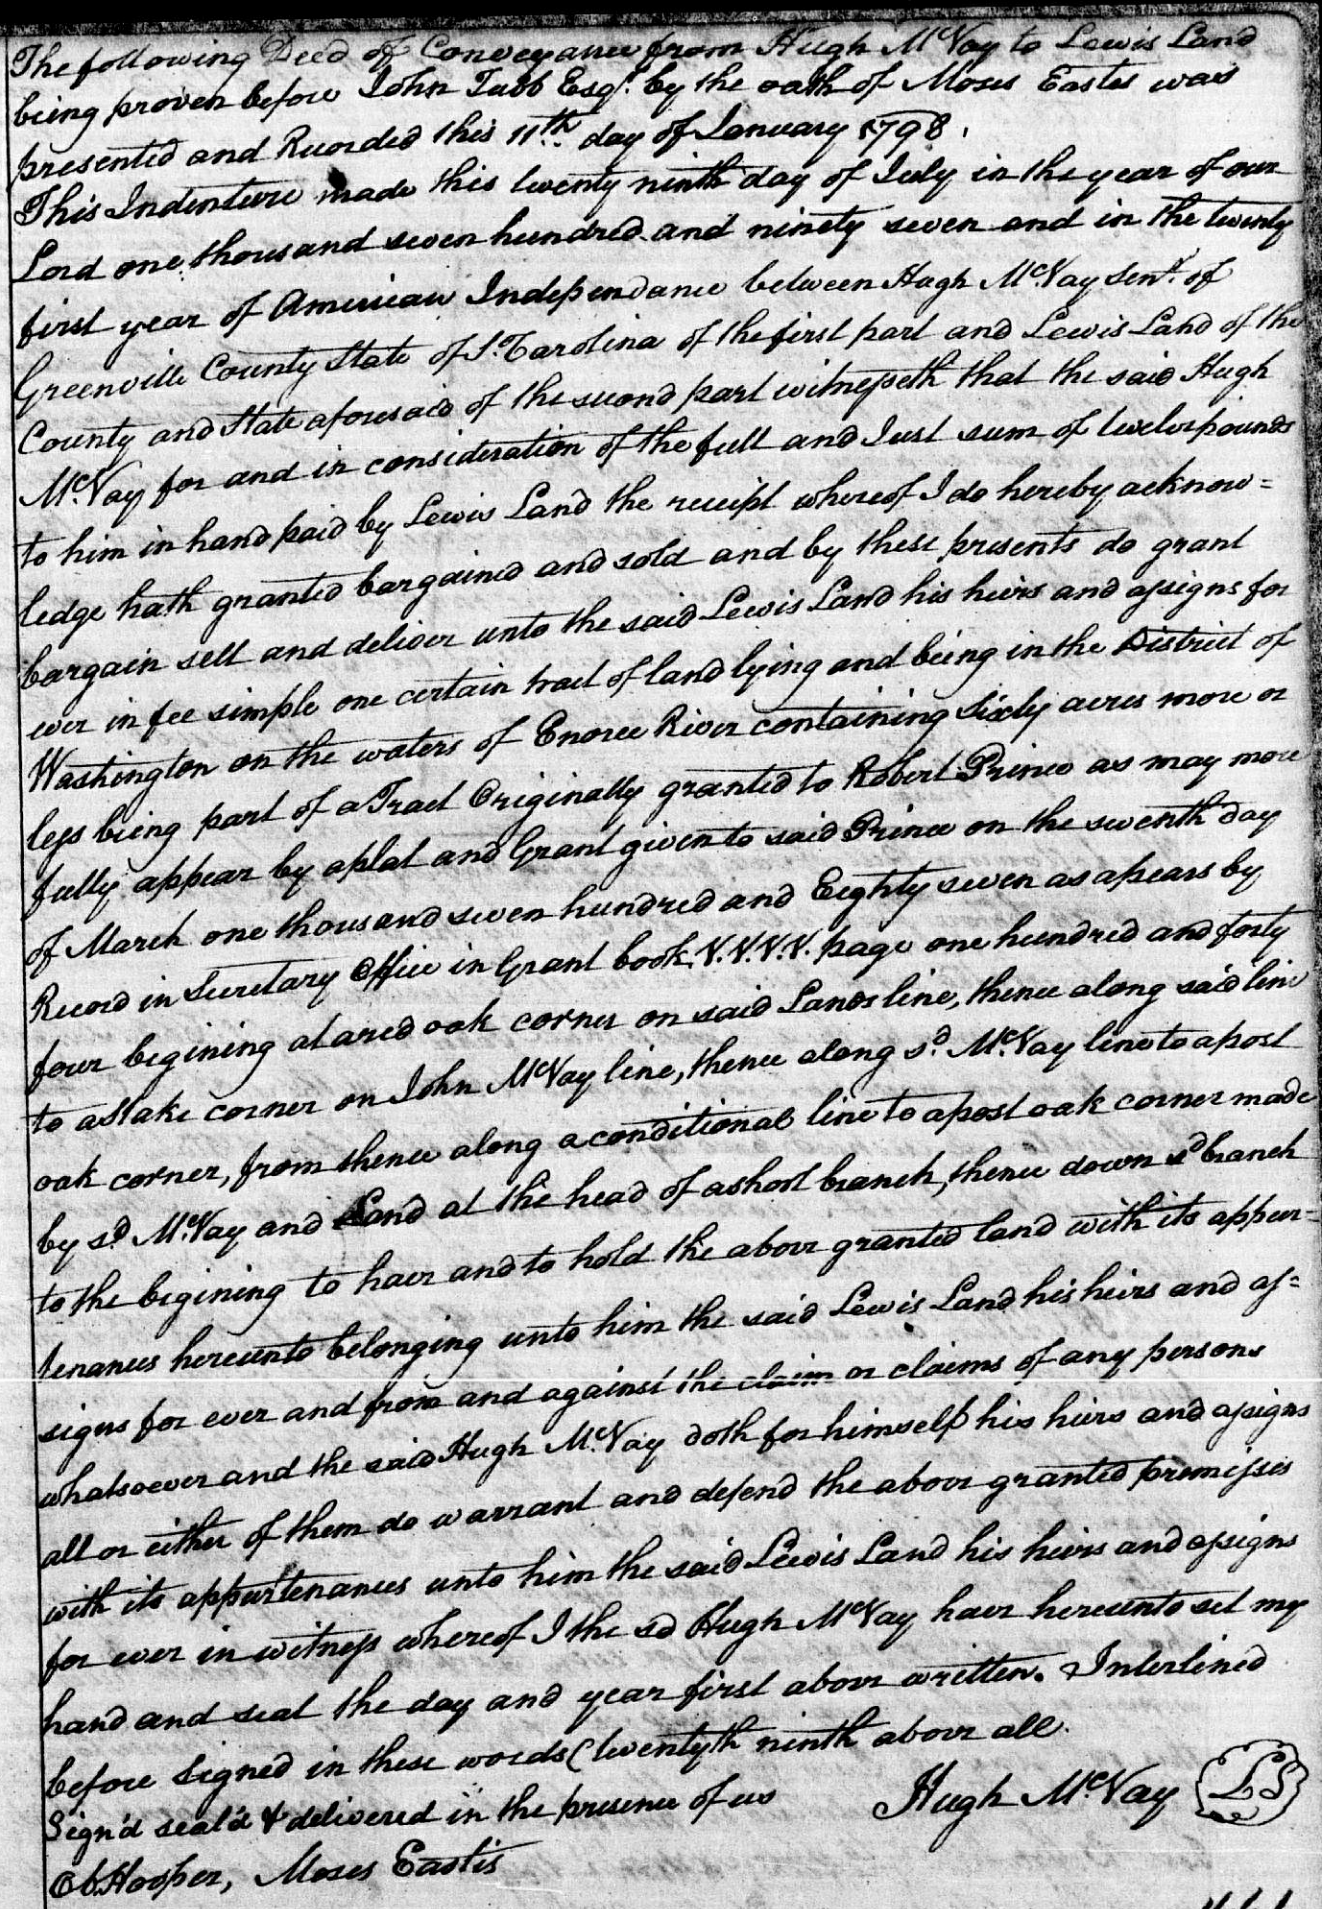 The following Deed of Conveyance from Hugh McVay to Lewis Land
being proven before John Tubb Esqr. by the oath of Moses Eastes was
presented and Recorded this 11th day of January 1798.
This Indenture made this twenty ninth day of July in the year of our
Lord one thousand seven hundred and ninety seven and in the twenty
first year of American Independance between Hugh McVay Senr. of
Greenville County State of S. Carolina of the first part and Lewis Land of the
County and State aforesaid of the second part witnesseth that the said Hugh
McVay for and in consideration of the full and Just sum of twelve pounds
to him in hand paid by Lewis Land the receipt whereof I do hereby acknow=
ledge hath granted bargained and sold and by these presents do grant
bargain sell and deliver unto the said Lewis Land his heirs and assigns for
ever in fee simple one certain tract of land lying and being in the District of
Washington on the waters of Enoree River containing Sixty acres more or
less being part of a Tract Originally granted to Robert Prince as may more
fully appear by a plat and Grant given to said Prince on the seventh day
of March one thousand seven hundred and Eighty seven as apears by
Record in Secretary Office in Grant book V.V.V.V. page one hundred and forty
four begining at a red oak corner on said Lands line, thence along said line
to a stake corner on John McVay line, thence along sd. McVay line to a post
oak corner, from thence along a conditional line to a post oak corner made
by sd. McVay and Land at the head of a short branch, thence down sd branch
to the begining to have and to hold the above granted land with its appur=
tenances hereunto belonging unto him the said Lewis Land his heirs and as=
signs for ever and from and against the claim or claims of any persons
whatsoever and the said Hugh McVay doth for himself his heirs and assigns
all or either of them do warrant and defend the above granted premisses
with its appurtenances unto him the said Lewis Land his heirs and assigns
for ever in witness whereof I the sd Hugh McVay have hereunto set my
hand and seal the day and year first above written. Interlined
before Signed in these words (twentyth ninth above all.
Sign'd seal'd & delivered in the presence of us
Hugh McVay LS
Ob. Hooper, Moses Eastis